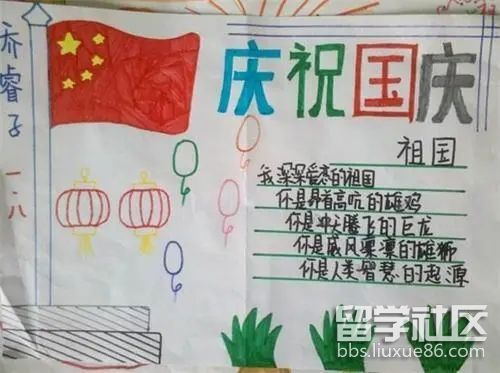 乔睿子
一.八
庆祝国庆
祖国
我深深爱恋的祖国
你是昂首高吭的雄鸡
你是冲天腾飞的巨龙
你是威风凛凛的雄狮
你是人类智慧的起源
留学社区
bbs.liuxue86.com